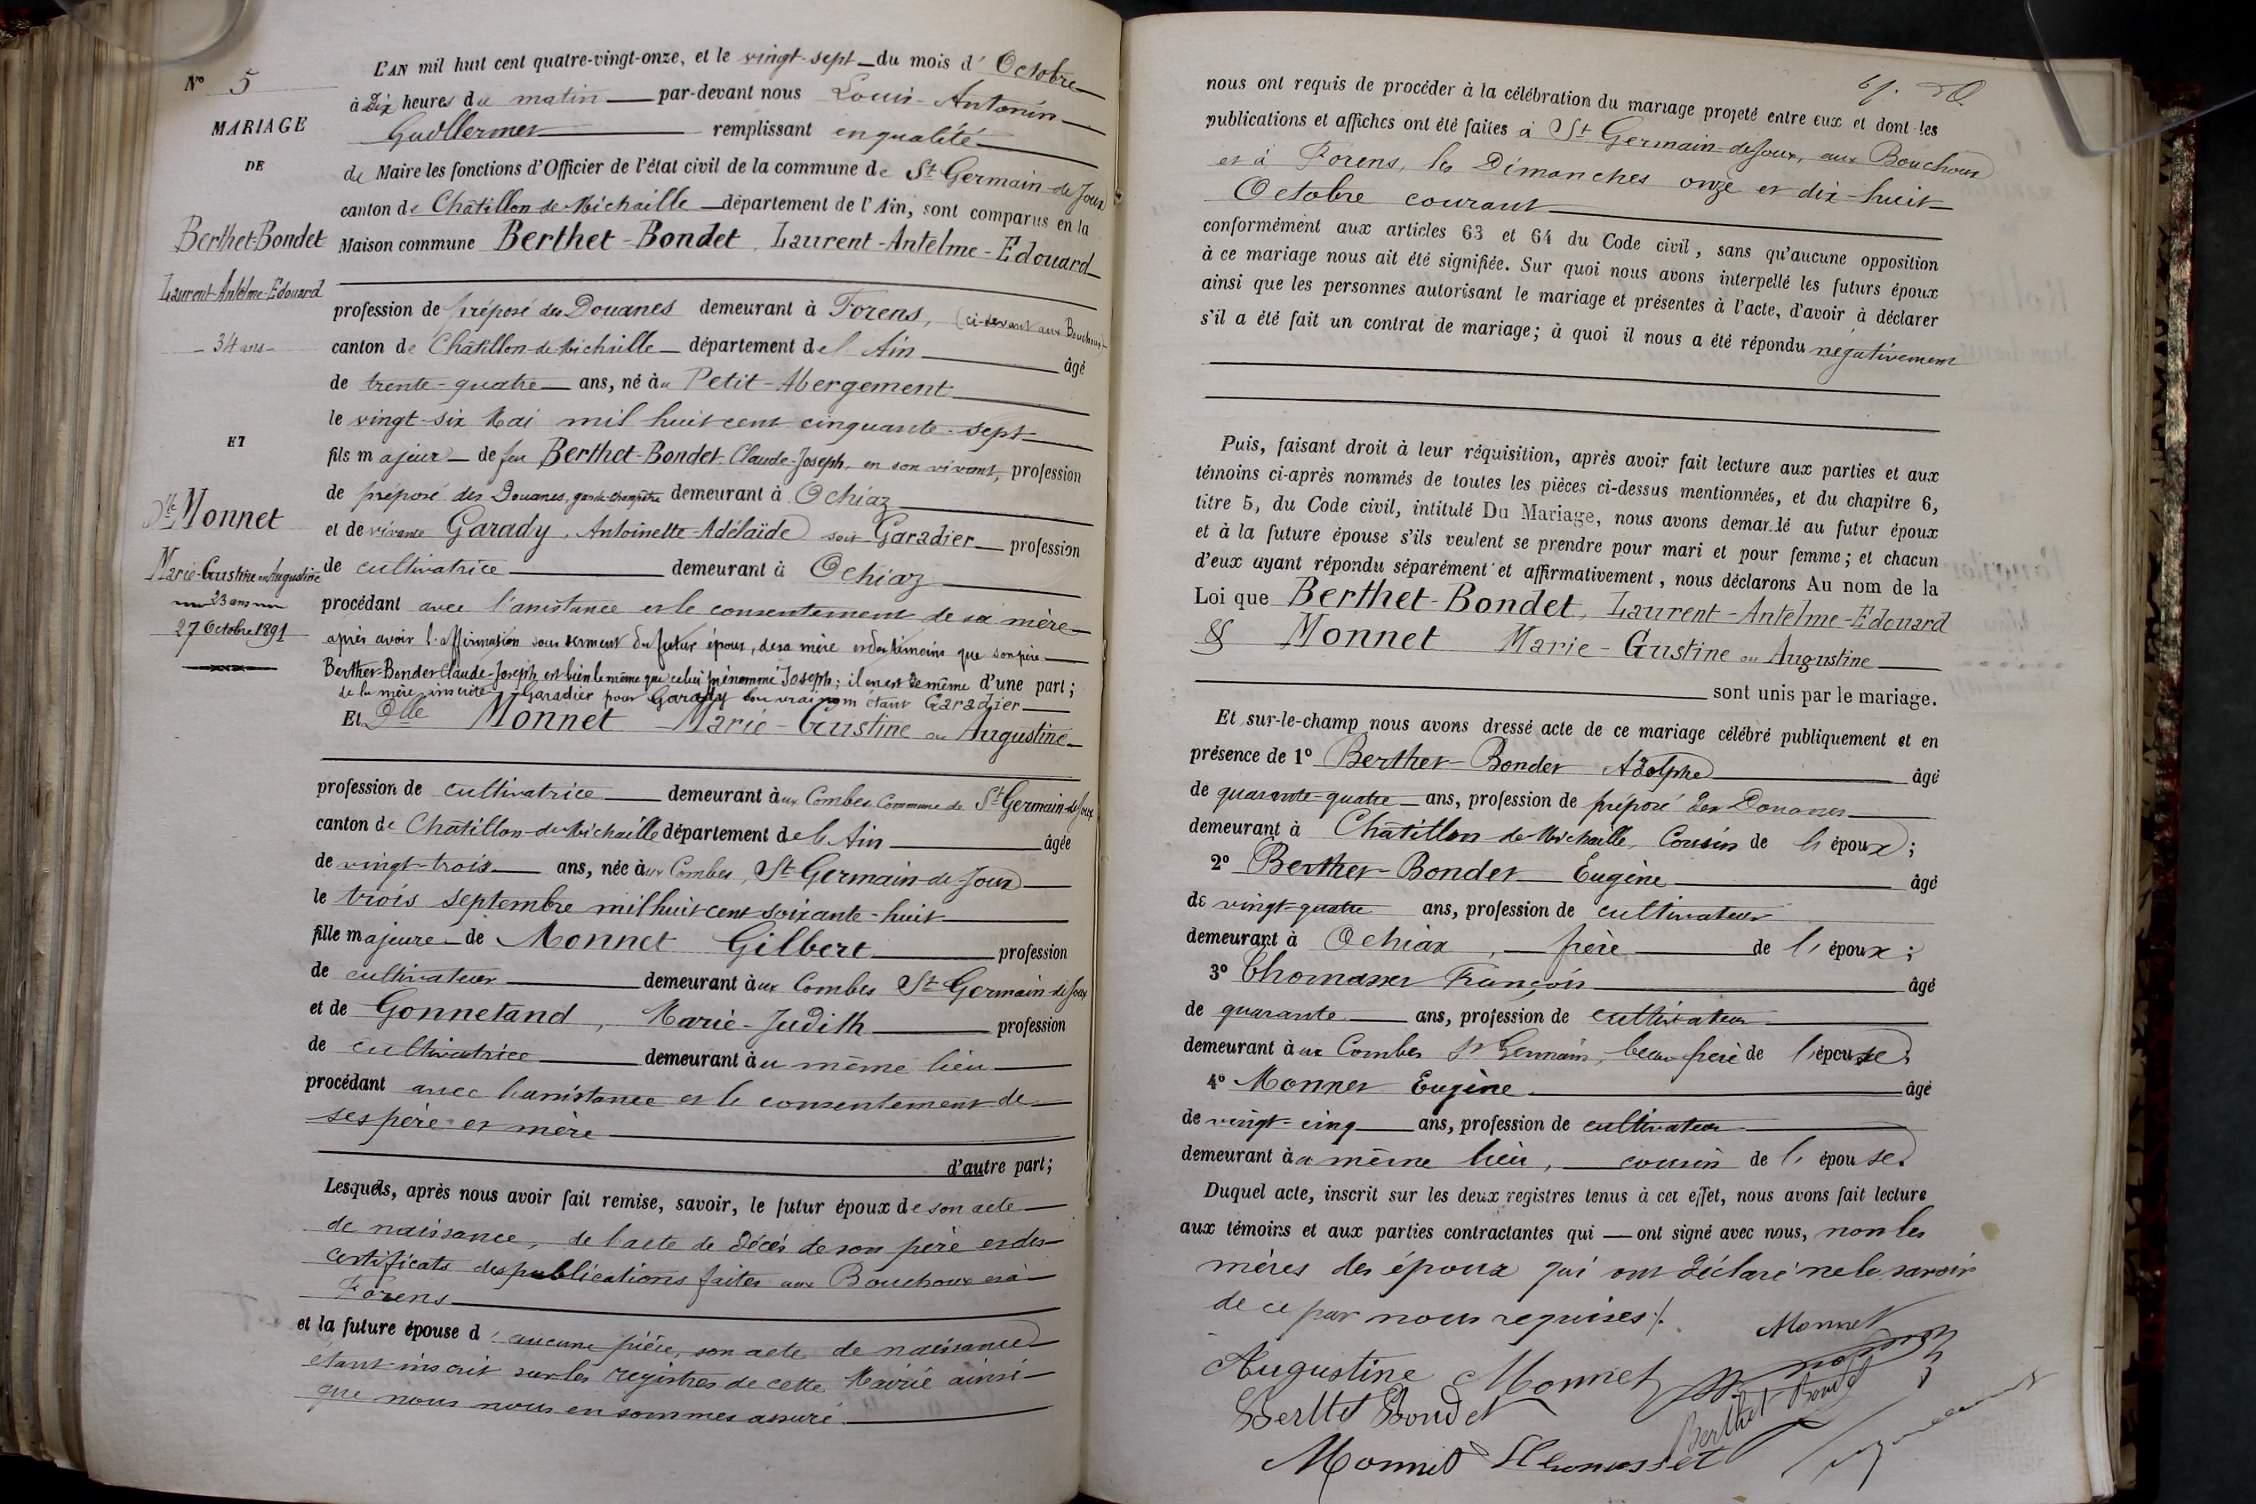 N° 5
MARIAGE
DE
Berthet-Bondet
Laurent-Antelme-Edouard
34 ans
ET
Dlle Monnet
Marie-Gustine ou Augustine
23 ans
27 Octobre 1891
L'AN mil huit cent quatre-vingt-onze, et le vingt-sept du mois d'Octobre
à dix heures du matin par-devant nous Louis-Antonin
Guillermet remplissant en qualité
de Maire les fonctions d'Officier de l'état civil de la commune de St Germain-de-Joux
canton de Châtillon-de-Michaille département de l'Ain, sont comparus en la
Maison commune Berthet-Bondet, Laurent-Antelme-Edouard
profession de préposé des Douanes demeurant à Forens, (ci-devant aux Bouchoux)
canton de Châtillon-de-Michaille département de l'Ain âgé
de trente-quatre ans, né au Petit-Abergement
le vingt-six Mai mil huit cent cinquante-sept
fils majeur de feu Berthet-Bondet, Claude-Joseph, en son vivant, profession
de préposé des Douanes, garde-champêtre demeurant à Ochiaz
et de vivante Garady, Antoinette-Adélaïde soit Garadier profession
de cultivatrice demeurant à Ochiaz
procédant avec l'assistance et le consentement de sa mère
après avoir l'affirmation sous serment du futur époux, de sa mère et des témoins que son père
Berthet-Bondet Claude-Joseph est bien le même que celui prénommé Joseph; il en est de même d'une part;
de la mère inscrite Garadier pour Garady son vrai nom étant Garadier
Et Dlle Monnet Marie-Gustine ou Augustine
profession de cultivatrice demeurant aux Combes Commune de St Germain-de-Joux
canton de Châtillon-de-Michaille département de l'Ain âgée
de vingt-trois ans, née aux Combes, St Germain-de-Joux
le trois septembre mil huit cent soixante-huit
fille majeure de Monnet Gilbert profession
de cultivateur demeurant aux Combes St Germain-de-Joux
et de Gonnetand, Marie-Judith profession
de cultivatrice demeurant au même lieu
procédant avec l'assistance et le consentement de
ses père et mère
d'autre part;
Lesquels, après nous avoir fait remise, savoir, le futur époux de son acte
de naissance, de l'acte de décès de son père et des
certificats des publications faites aux Bouchoux et à
Forens
et la future épouse d'aucune pièce, son acte de naissance
étant inscrit sur les registres de cette Mairie ainsi
que nous nous en sommes assuré
nous ont requis de procéder à la célébration du mariage projeté entre eux et dont les
publications et affiches ont été faites à St Germain-de-Joux, aux Bouchoux
et à Forens, les Dimanches onze et dix-huit
Octobre courant
conformément aux articles 63 et 64 du Code civil, sans qu'aucune opposition
à ce mariage nous ait été signifiée. Sur quoi nous avons interpellé les futurs époux
ainsi que les personnes autorisant le mariage et présentes à l'acte, d'avoir à déclarer
s'il a été fait un contrat de mariage; à quoi il nous a été répondu négativement
Puis, faisant droit à leur réquisition, après avoir fait lecture aux parties et aux
témoins ci-après nommés de toutes les pièces ci-dessus mentionnées, et du chapitre 6,
titre 5, du Code civil, intitulé Du Mariage, nous avons demandé au futur époux
et à la future épouse s'ils veulent se prendre pour mari et pour femme; et chacun
d'eux ayant répondu séparément et affirmativement, nous déclarons Au nom de la
Loi que Berthet-Bondet, Laurent-Antelme-Edouard
& Monnet Marie-Gustine ou Augustine
sont unis par le mariage.
Et sur-le-champ nous avons dressé acte de ce mariage célébré publiquement et en
présence de 1° Berthet-Bondet Adolphe âgé
de quarante-quatre ans, profession de préposé des Douanes
demeurant à Châtillon-de-Michaille, cousin de l'époux;
2° Berthet-Bondet Eugène âgé
de vingt-quatre ans, profession de cultivateur
demeurant à Ochiaz, frère de l'époux;
3° Thomasset François âgé
de quarante ans, profession de cultivateur
demeurant aux Combes St Germain, beau-frère de l'épouse;
4° Monnet Eugène âgé
de vingt-cinq ans, profession de cultivateur
demeurant au même lieu, cousin de l'épouse.
Duquel acte, inscrit sur les deux registres tenus à cet effet, nous avons fait lecture
aux témoins et aux parties contractantes qui ont signé avec nous, non les
mères des époux qui ont déclaré ne le savoir
de ce par nous requises.
Monnet
Augustine Monnet
Berthet Bondet
Berthet Bondet
Monnet Thomasset